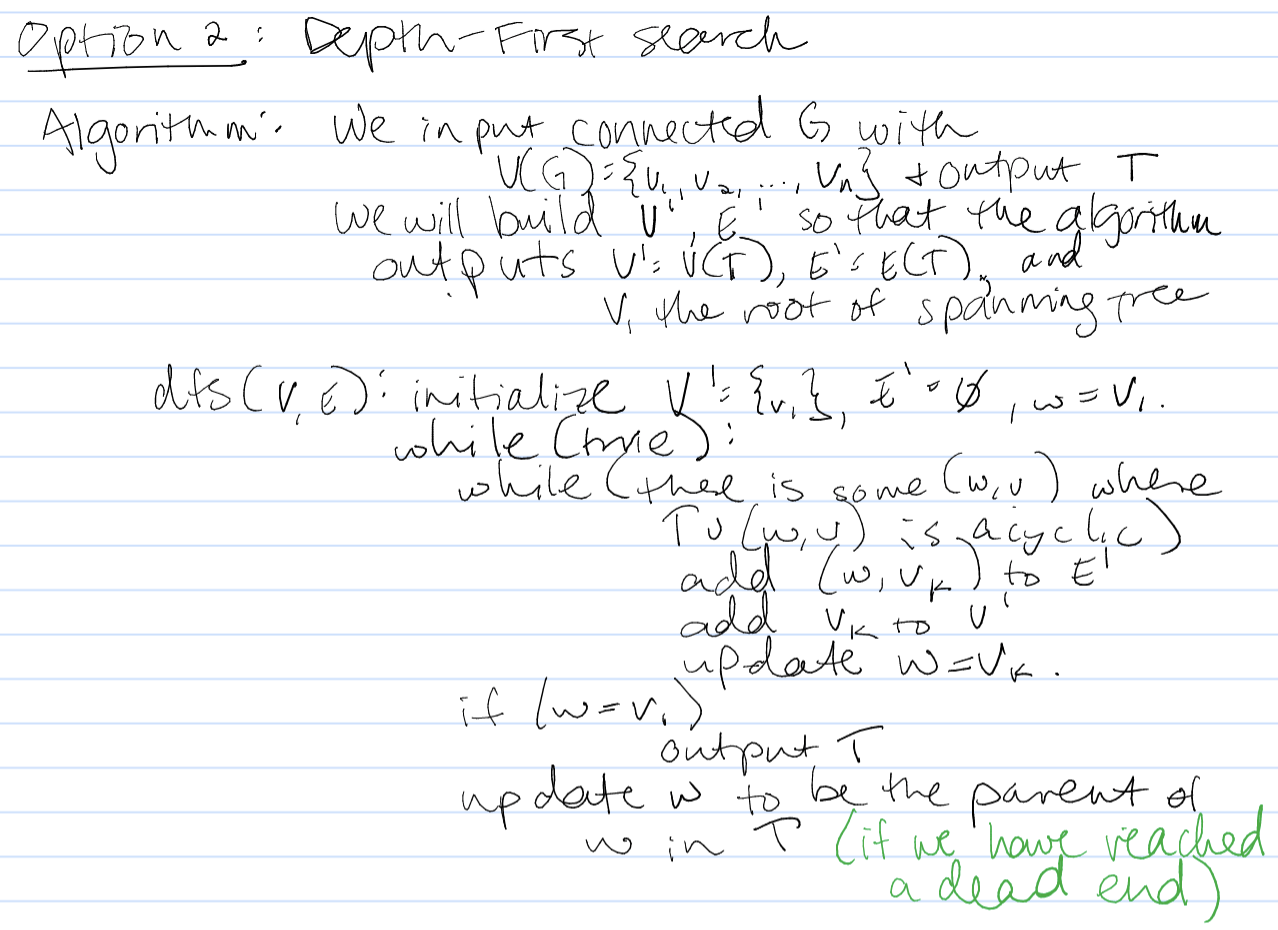 Option 2: Depth-First search
Algorithm: We input connected G with
V(G)={v₁, v₂, ..., vₙ} + output T
we will build V', E' so that the algorithm
outputs V'=V(T), E'=E(T), and
v₁ the root of spanning tree
dfs(V,E): initialize V'={v₁}, E'=∅, w=v₁.
while (true):
while (there is some (w,v) where
T∪(w,v) is acyclic)
add (w,vₖ) to E'
add vₖ to V'
update w=vₖ.
if (w=v₁)
output T
update w to be the parent of
w in T (if we have reached
a dead end)